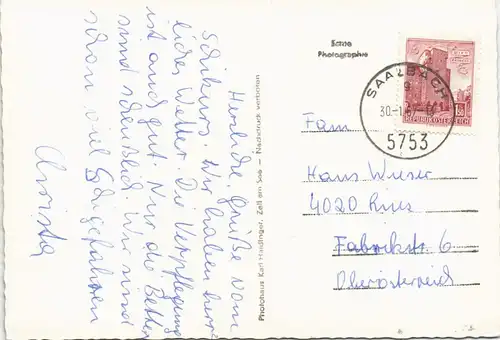 Herzliche Grüße vom
Schikurs. Wir haben herr-
liches Wetter. Die Verpflegung
ist auch gut. Nur die Betten
sind scheußlich. Wir sind
schon viel Schi gefahren
Christa
Photohaus Karl Haidinger, Zell am See — Nachdruck verboten
Echte
Photographie
SAALBACH
30.-1.
5753
REPUBLIK ÖSTERREICH
Fam
Hans Wieser
4020
Fabrikstr. 6
Oberösterreich